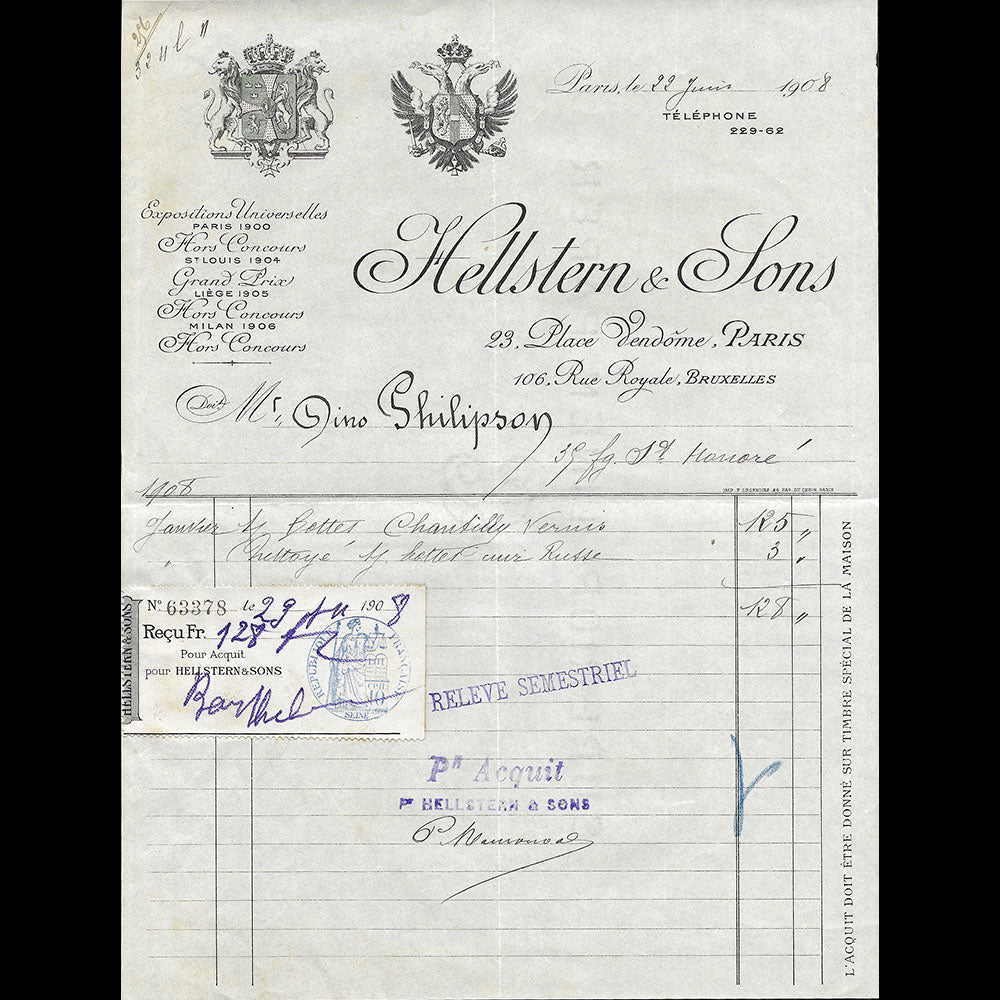 Paris, le 22 Juin 1908
TÉLÉPHONE
229-62
Expositions Universelles
PARIS 1900
Hors Concours
ST LOUIS 1904
Grand Prix
LIÈGE 1905
Hors Concours
MILAN 1906
Hors Concours
Hellstern & Sons
23, Place Vendôme, PARIS
106, Rue Royale, BRUXELLES
Doit Mr. Dino Philipson
35 fg. St Honoré
1908
Janvier 1/ Bottes Chantilly Vernis 125 "
" Nettoyé 1/ bottes cuir Russe 3 "
128 "
HELLSTERN & SONS
No 63378 le 29 1908
Reçu Fr. 128
Pour Acquit
pour HELLSTERN & SONS
REPUBLIQUE FRANÇAISE
10
SEINE
RELEVE SEMESTRIEL
Pr Acquit
Pr HELLSTERN & SONS
L'ACQUIT DOIT ÊTRE DONNÉ SUR TIMBRE SPÉCIAL DE LA MAISON